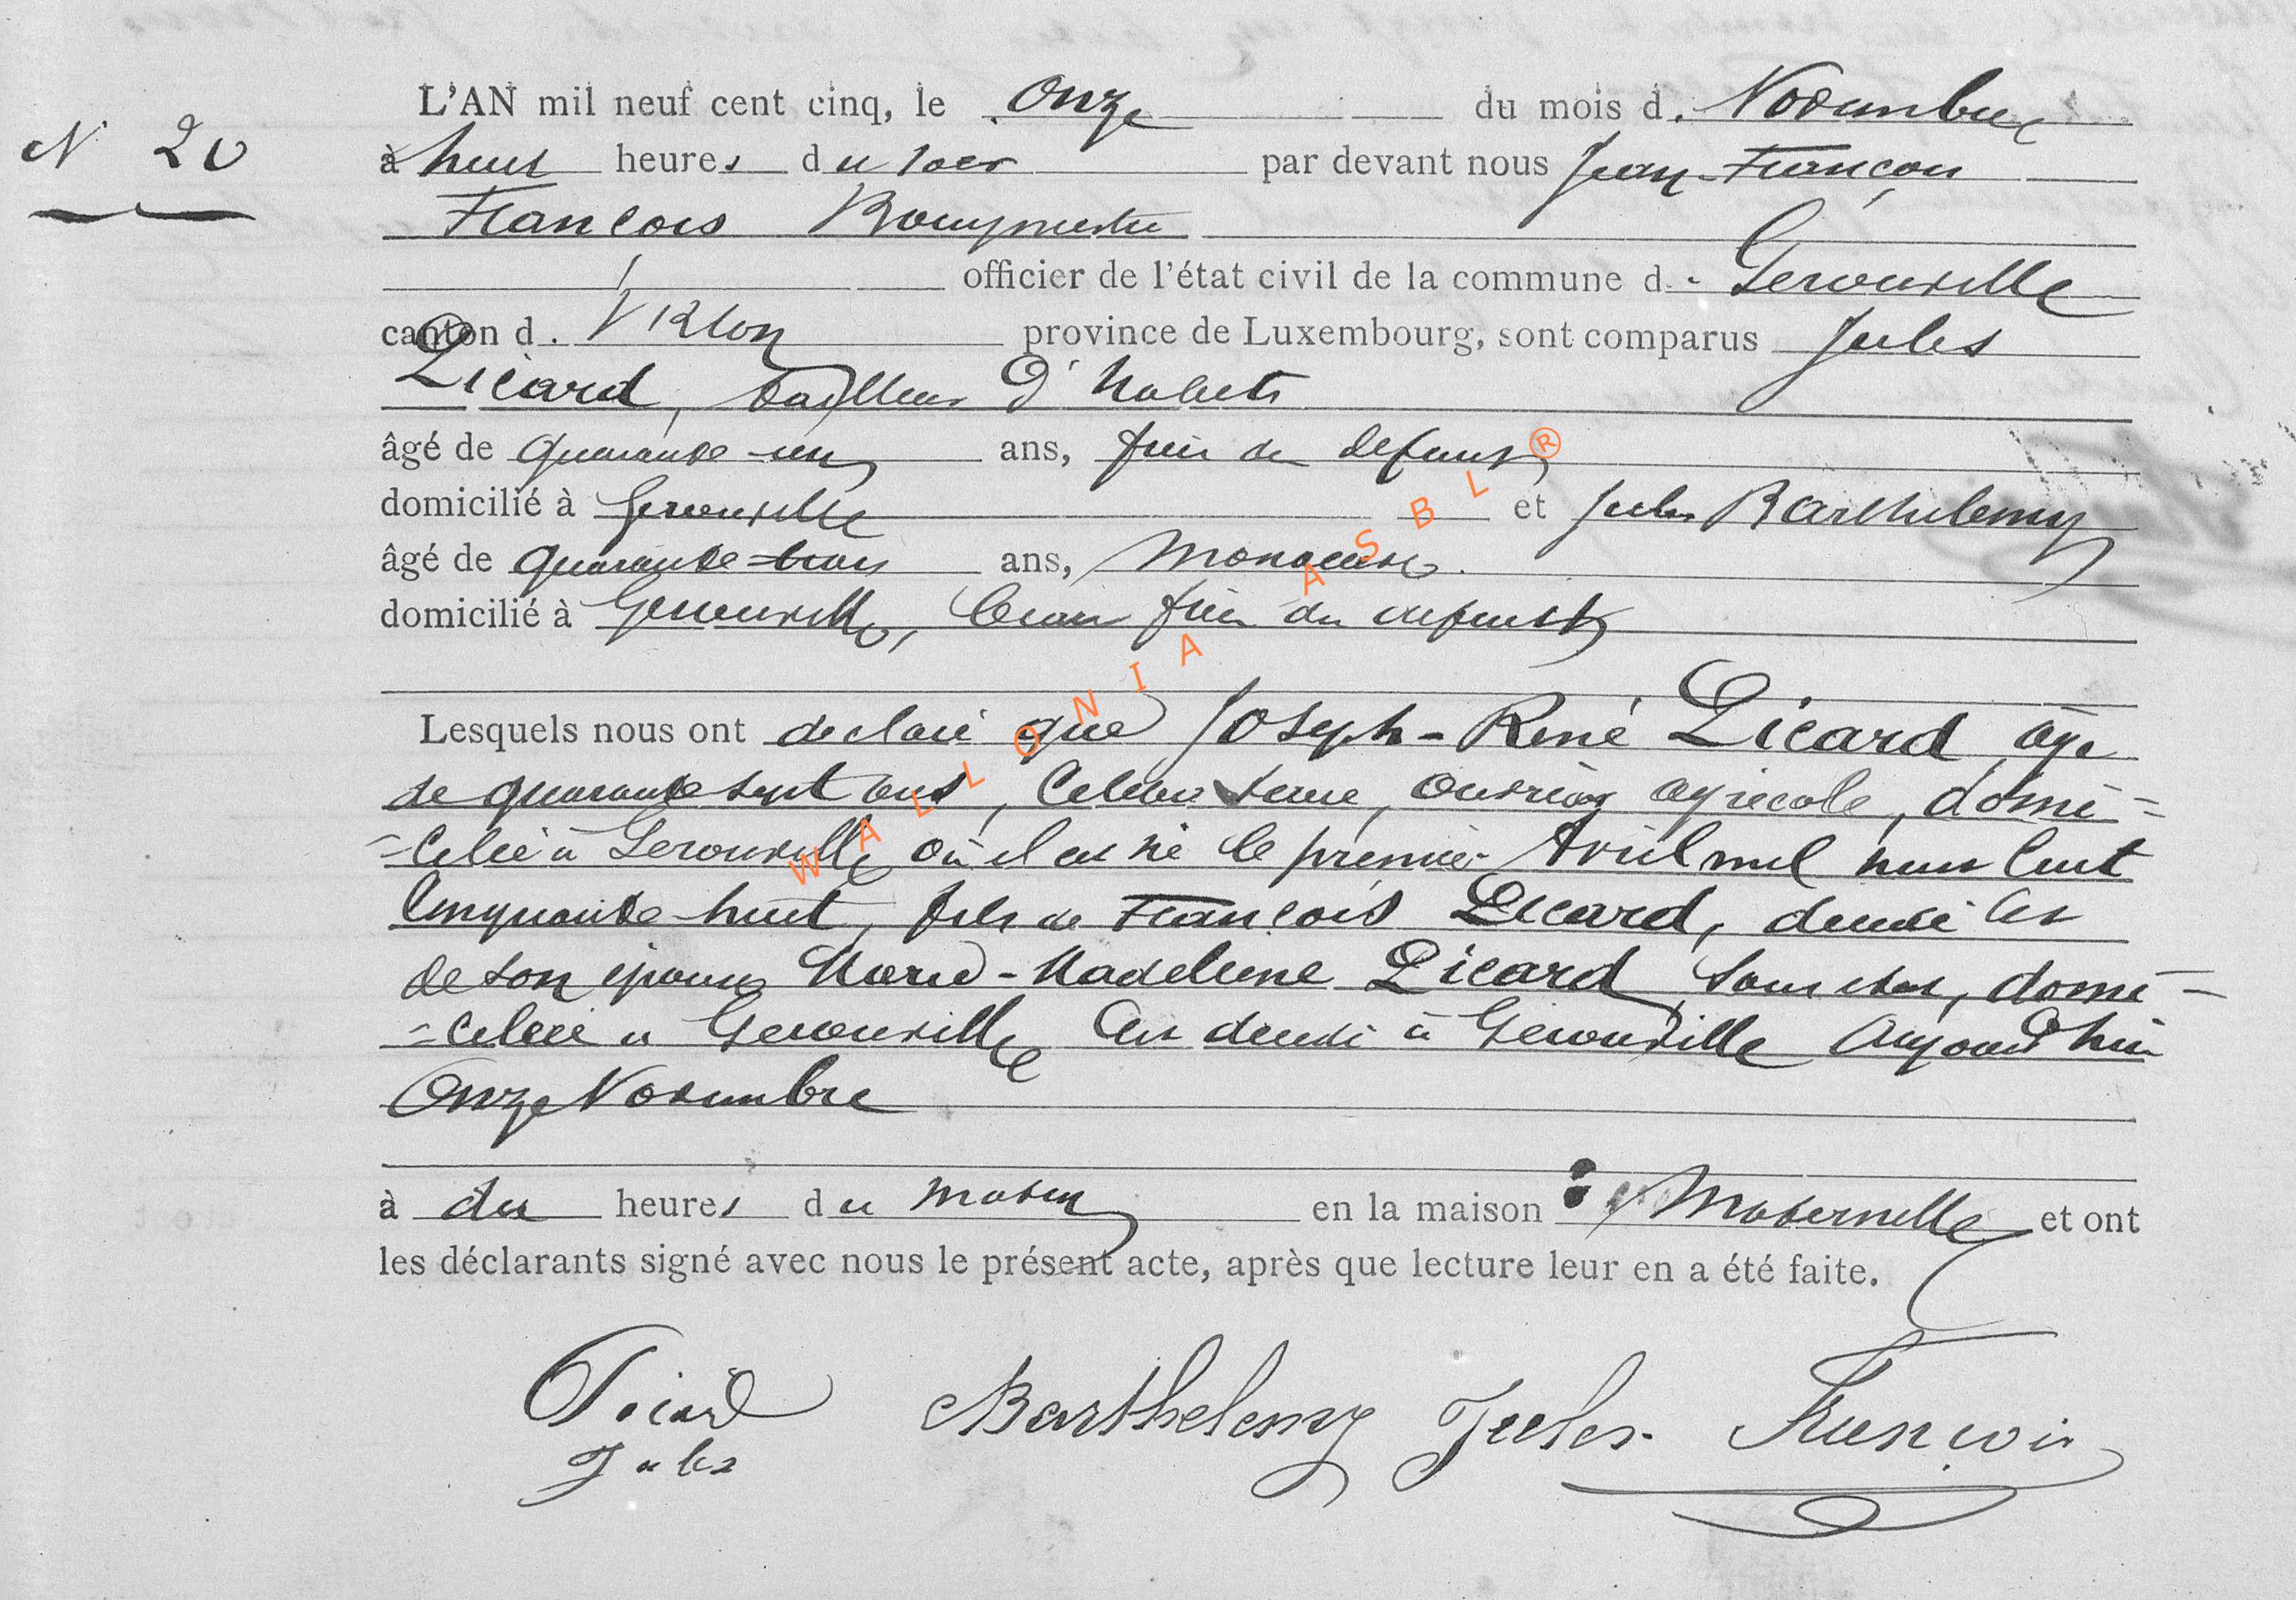 N 20
L'AN mil neuf cent cinq, le onze du mois d. Novembre
à huit heures du soir par devant nous Jean-François
François Bourgmestre
officier de l'état civil de la commune d. Gerouville
canton d. Virton province de Luxembourg, sont comparus Jules
Picard, tailleur d'habits
âgé de quarante-un ans, frère du defunt
domicilié à Gerouville et Jules Barthelemy
âgé de quarante-trois ans,
domicilié à Gerouville, beau frère du defunt
Lesquels nous ont declaré que Joseph-René Picard âgé
de quarante sept ans, Celibataire, ouvrier agricole, domi=
=cilié à Gerouville où il est né le premier Avril mil huit cent
cinquante-huit, fils de François Picard, décédé et
de son épouse Marie-Madeleine Picard, domi-
=ciliée à Gerouville est décédé à Gerouville aujourd'hui
onze Novembre
à dix heures du matin en la maison Maternelle et ont
les déclarants signé avec nous le présent acte, après que lecture leur en a été faite.
Picard Barthelemy Jules François
Jules
WALLONIA ASBL ®